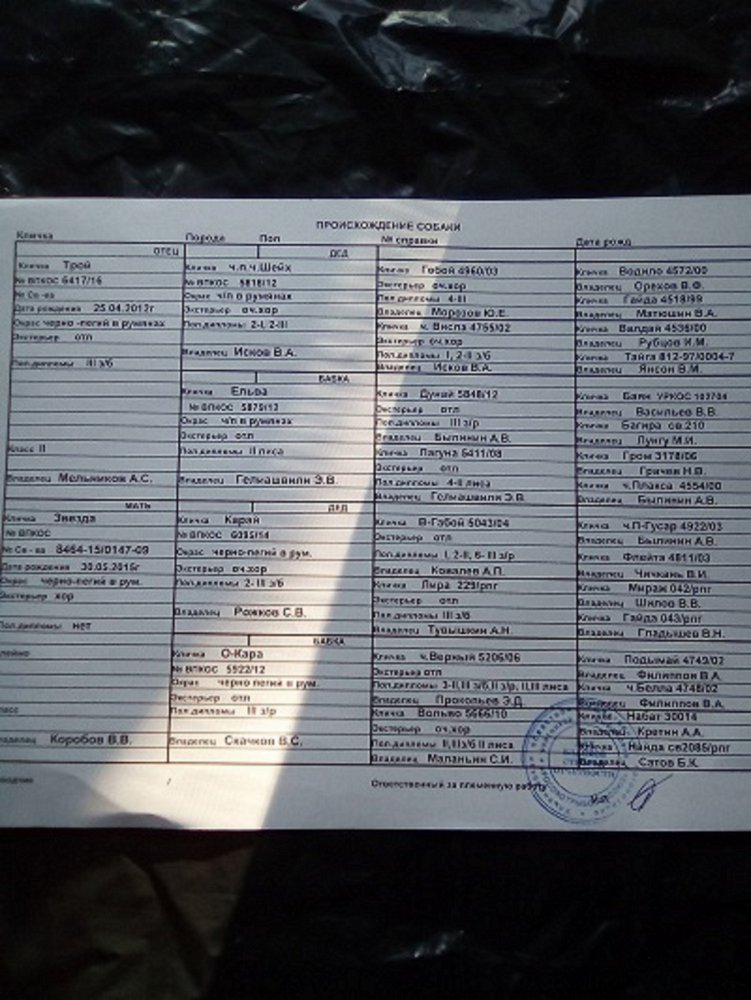 ПРОИСХОЖДЕНИЕ СОБАКИ
Кличка Порода Пол № справки Дата рожд
ОТЕЦ
Кличка Трой
№ ВПКОС 6417/16
№ Св-ва
Дата рождения 25.04.2012г
Окрас черно-пегий в румянах
Экстерьер отл
Пол.дипломы III з/б
Класс II
Владелец Мельников А.С.
МАТЬ
Кличка Звезда
№ ВПКОС
№ Св-ва 8464-15/0147-09
Дата рождения 30.05.2015г
Окрас черно-пегий в рум.
Экстерьер хор
Пол.дипломы нет
Коробов В.В.
ДЕД
Кличка ч.п.ч.Шейх
№ ВПКОС 5818/12
Окрас ч/п в румянах
Экстерьер оч.хор
Пол.дипломы 2-I, 2-III
Владелец Исков В.А.
БАБКА
Кличка Ельва
№ ВПКОС 5879/12
Окрас ч/п в румянах
Экстерьер отл
Пол.дипломы II лиса
Владелец Гелиашвили Э.В.
ДЕД
Кличка Карай
№ ВПКОС
Окрас черно-пегий в рум.
Экстерьер оч.хор
Пол.дипломы 2-III з/б
Владелец Рожков С.В.
БАБКА
Кличка О-Кара
№ ВПКОС 5922/12
Окрас черно пегий в рум.
Экстерьер отл
Пол.дипломы III з/р
Владелец Скачков В.С.
Кличка Гобой 4960/03
Экстерьер оч.хор
Пол.дипломы 4-III
Владелец Морозов Ю.Е.
Кличка ч. Висла 4765/02
Экстерьер оч.хор
Пол.дипломы I, 2-II з/б
Владелец Исков В.А.
Кличка Дунай 5848/12
Экстерьер отл
Пол.дипломы III з/р
Владелец Былинин А.В.
Кличка Лагуна 5411/08
Экстерьер отл
Пол.дипломы 4-II лиса
Владелец Гелиашвили Э.В.
Кличка В-Габой 5043/04
Экстерьер отл
Пол.дипломы I, 2-II, 6-III з/р
Владелец Ковалев А.П.
Кличка Лыра 229/рлг
Экстерьер отл
Пол.дипломы III з/б
Владелец Тувышкин А.Н.
Кличка ч.Верный 5206/06
Экстерьер отл
Пол.дипломы 3-II,III з/б,II з/р, II,III лиса
Владелец Прокопьев Э.Д.
Кличка Вольво 5666/10
Экстерьер оч.хор
Пол.дипломы II,III з/б II лиса
Владелец Маланьин С.И.
Кличка Водило 4572/00
Владелец Орехов В.Ф.
Кличка Гайда 4518/99
Владелец Матюшин В.А.
Кличка Валдай 4536/00
Владелец Рубцов И.М.
Кличка Тайга 812-97/0004-7
Владелец Янсон В.М.
Кличка Баян УРКОС
Владелец Васильев В.В.
Кличка Багира св.210
Владелец Лунгу М.И.
Кличка Гром 3178/06
Владелец Гричин Н.В.
Кличка ч.Плакса 4554/00
Владелец Былинин А.В.
Кличка ч.П-Гусар 4922/03
Владелец Былинин А.В.
Кличка Флейта 4811/03
Владелец Чичкань В.И.
Кличка Мираж 042/рлг
Владелец Шилов В.В.
Кличка Гайда 043/рлг
Владелец Гладышев В.Н.
Кличка Подымай 4749/02
Владелец Филиппов В.А.
Кличка ч.Белла 4748/02
Владелец Филиппов В.А.
Кличка Набат 30014
Владелец Кретин А.А.
Кличка Найда св2085/рлг
Владелец Сатов Б.К.
Ответственный за племенную работу